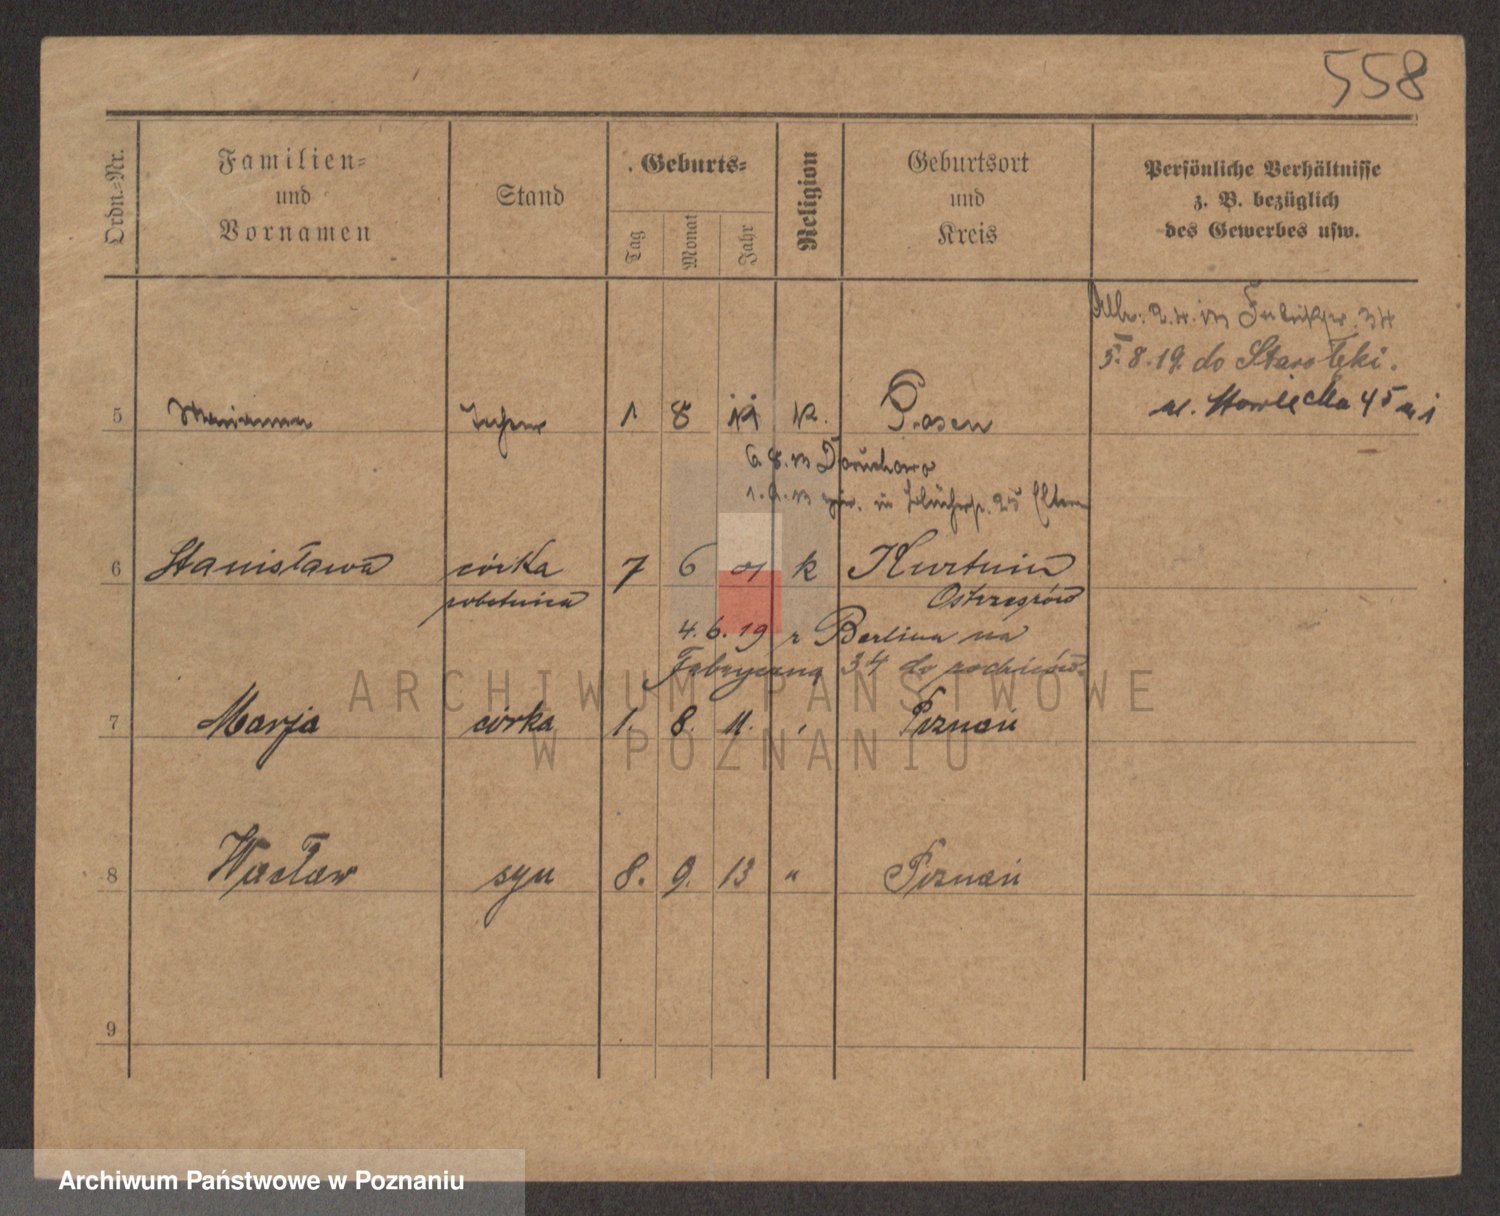 558
Ordn.=Nr.
Familien=
und
Vornamen
Stand
Geburts=
Tag
Monat
Jahr
Religion
Geburtsort
und
Kreis
Persönliche Verhältnisse
z. B. bezüglich
des Gewerbes usw.
34
5.8.19. do Starołęki.
45
5 Marianna 1 8 k. Posen
6. 8.
25 Eltern
6 Stanisława córka 7 6 01 k
robotnica Ostrzeszów
4.6.19 z Berlina na
Fabryczną 34 do rodziców.
7 Marja córka 1. 8. 11. Poznań
8 Wacław syn 8. 9. 13 " Poznań
9
ARCHIWUM PAŃSTWOWE
W POZNANIU
Archiwum Państwowe w Poznaniu